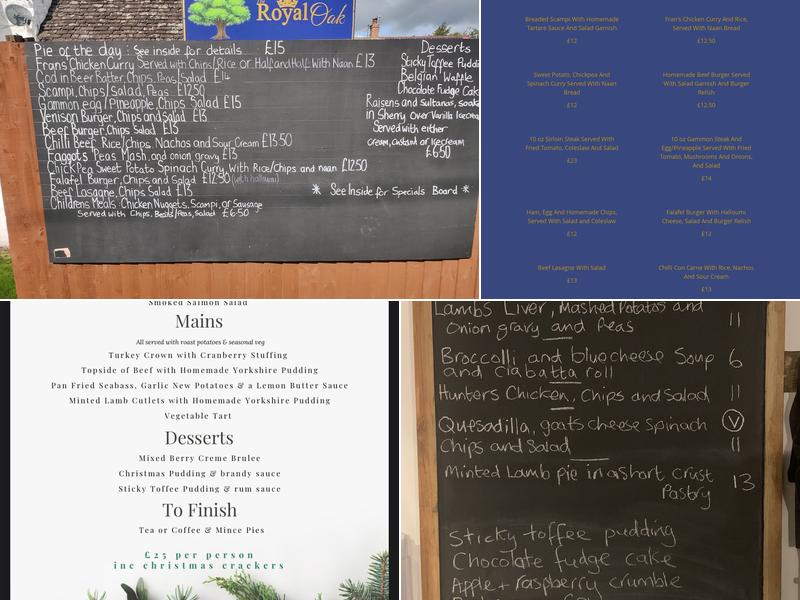 Royal Oak
Pie of the day : See inside for details £15
Frans Chicken Curry Served with Chips/Rice or Half and Half With Naan £13
Cod in Beer Batter, Chips, Peas/Salad £14
Scampi, Chips/Salad, Peas £12.50
Gammon egg/Pineapple, Chips Salad £15
Venison Burger, Chips and Salad £13
Beef Burger, Chips Salad £13
Chilli Beef Rice/chips Nachos and Sour Cream £13.50
Faggots Peas Mash, and onion gravy £13
ChickPea Sweet Potato Spinach Curry, With Rice/chips and naan £12.50
Falafel Burger, Chips and Salad £12.50 (with halloumi)
Beef Lasagne, Chips Salad £13
Childrens Meals : Chicken Nuggets, Scampi, or Sausage
Served with Chips, Beans/Peas, Salad £6.50
Desserts
Sticky Toffee Puddi
Belgian Waffle
Chocolate Fudge Cak
Raisens and Sultanas, soake
in Sherry Over Vanilla Icecrea
Served with either
cream, custard or icecream
£6.50
* See Inside for Specials Board *
Breaded Scampi With Homemade
Tartare Sauce And Salad Garnish
£12
Fran's Chicken Curry And Rice,
Served With Naan Bread
£12.50
Sweet Potato, Chickpea And
Spinach Curry Served With Naan
Bread
£12
Homemade Beef Burger Served
With Salad Garnish And Burger
Relish
£12.50
10 oz Sirloin Steak Served With
Fried Tomato, Coleslaw And Salad
£23
10 oz Gammon Steak And
Egg/Pineapple Served With Fried
Tomato, Mushrooms And Onions,
And Salad
£14
Ham, Egg And Homemade Chips,
Served With Salad and Coleslaw
£12
Falafel Burger With Halloumi
Cheese, Salad And Burger Relish
£12
Beef Lasagne With Salad
£13
Chilli Con Carne With Rice, Nachos
And Sour Cream
£13
Smoked Salmon Salad
Mains
All served with roast potatoes & seasonal veg
Turkey Crown with Cranberry Stuffing
Topside of Beef with Homemade Yorkshire Pudding
Pan Fried Seabass, Garlic New Potatoes & a Lemon Butter Sauce
Minted Lamb Cutlets with Homemade Yorkshire Pudding
Vegetable Tart
Desserts
Mixed Berry Creme Brulee
Christmas Pudding & brandy sauce
Sticky Toffee Pudding & rum sauce
To Finish
Tea or Coffee & Mince Pies
£25 per person
inc christmas crackers
Lambs Liver, Mashed Potatoes and
Onion gravy and Peas 11
Broccolli and bluecheese Soup 6
and ciabatta roll
Hunters Chicken, Chips and Salad 11
Quesadilla, goats cheese spinach V
Chips and Salad 11
Minted Lamb pie in a short crust 13
Pastry
Sticky toffee pudding
Chocolate fudge cake
Apple + raspberry crumble